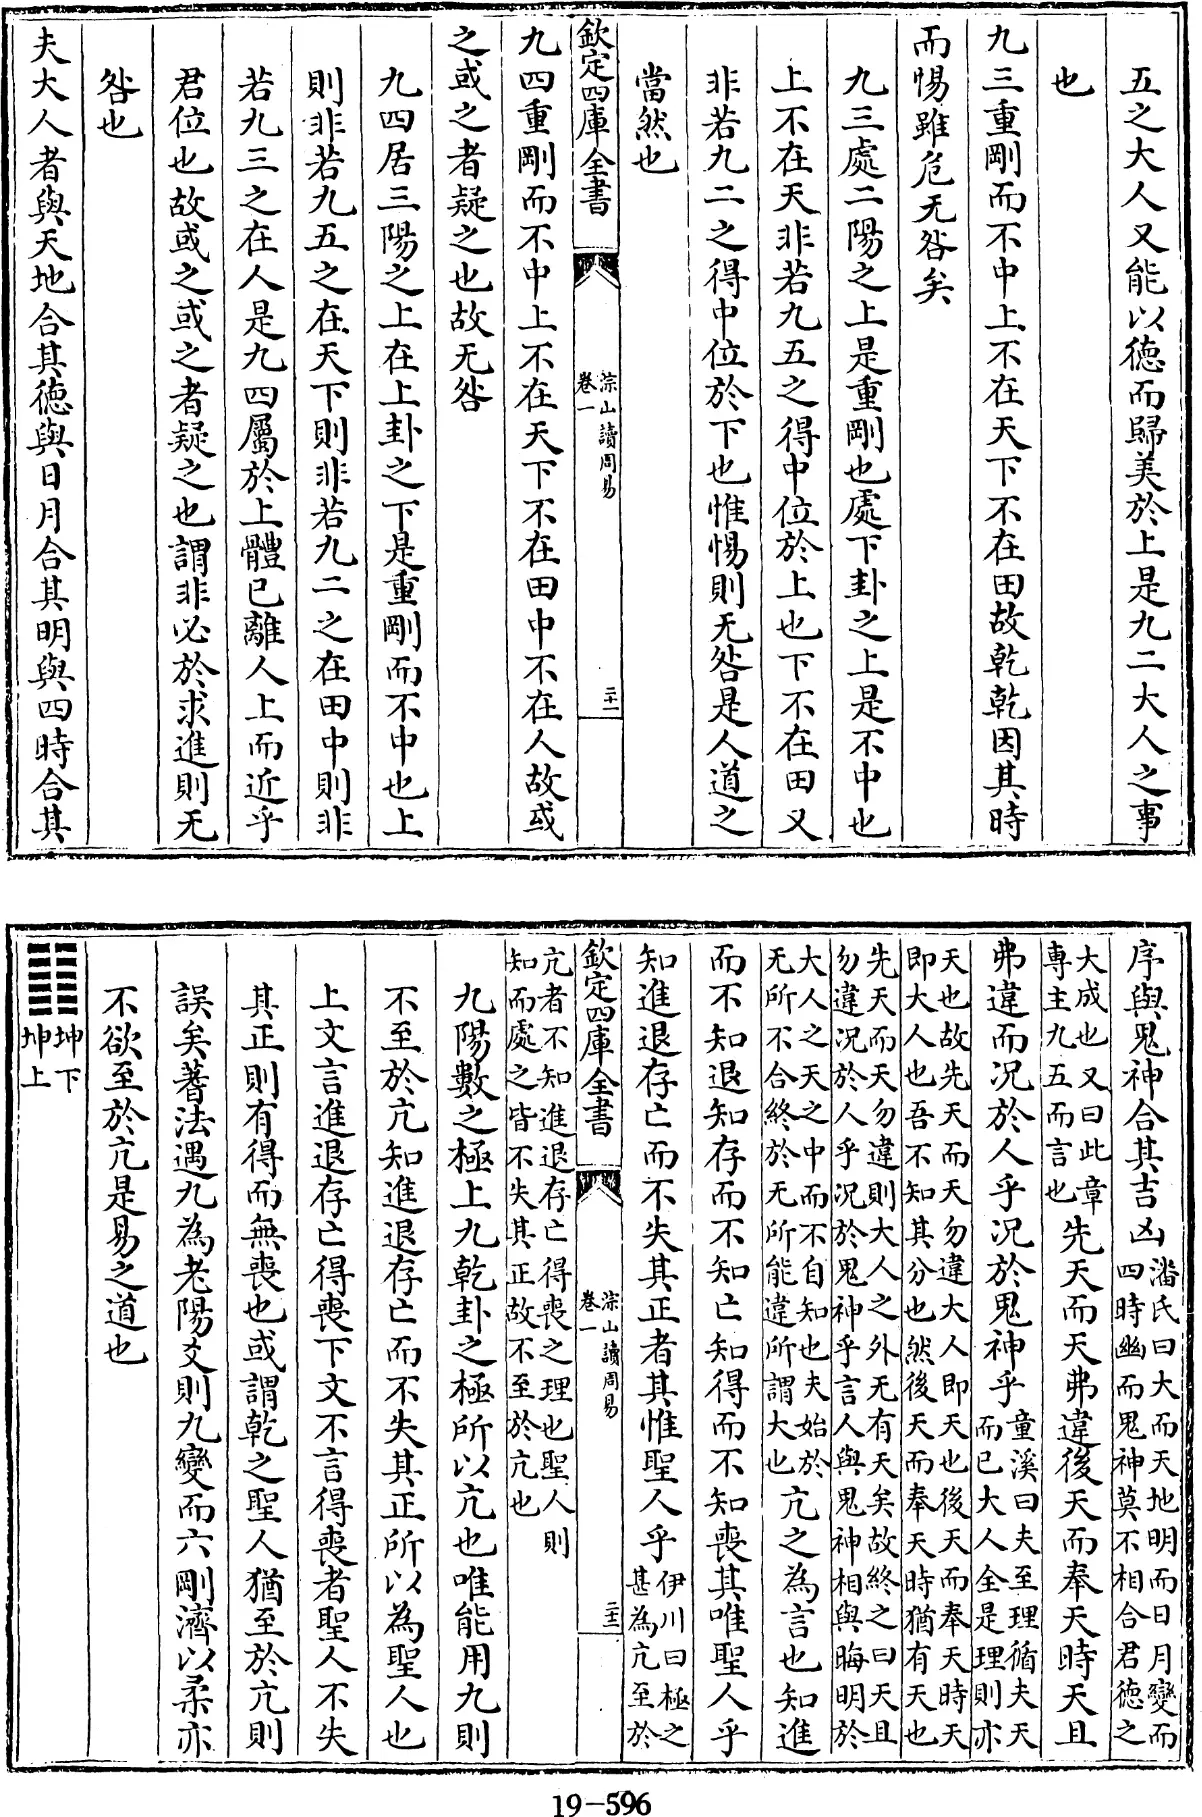 五之大人又能以德而歸美於上是九二大人之事
也
九三重剛而不中上不在天下不在田故乾乾因其時
而惕雖危无咎矣
九三處二陽之上是重剛也處下卦之上是不中也
上不在天非若九五之得中位於上也下不在田又
非若九二之得中位於下也惟惕則无咎是人道之
當然也
欽定四庫全書
淙山讀周易
卷一
二十一
九四重剛而不中上不在天下不在田中不在人故或
之或之者疑之也故无咎
九四居三陽之上在上卦之下是重剛而不中也上
則非若九五之在天下則非若九二之在田中則非
若九三之在人是九四屬於上體已離人上而近乎
君位也故或之或之者疑之也謂非必於求進則无
咎也
夫大人者與天地合其德與日月合其明與四時合其
序與鬼神合其吉凶潘氏曰大而天地明而日月變而
四時幽而鬼神莫不相合君德之
大成也又曰此章
專主九五而言也先天而天弗違後天而奉天時天且
弗違而況於人乎況於鬼神乎童溪曰夫至理循夫天
而已大人全是理則亦
天也故先天而天勿違大人即天也後天而奉天時天
即大人也吾不知其分也然後天而奉天時猶有天也
先天而天勿違則大人之外无有天矣故終之曰天且
勿違況於人乎況於鬼神乎言人與鬼神相與晦明於
大人之天之中而不自知也夫始於
无所不合終於无所能違所謂大也亢之為言也知進
而不知退知存而不知亡知得而不知喪其唯聖人乎
知進退存亡而不失其正者其惟聖人乎伊川曰極之
甚為亢至於
亢者不知進退存亡得喪之理也聖人則
知而處之皆不失其正故不至於亢也
欽定四庫全書
淙山讀周易
卷一
二十二
九陽數之極上九乾卦之極所以亢也唯能用九則
不至於亢知進退存亡而不失其正所以為聖人也
上文言進退存亡得喪下文不言得喪者聖人不失
其正則有得而無喪也或謂乾之聖人猶至於亢則
誤矣蓍法遇九為老陽爻則九變而六剛濟以柔亦
不欲至於亢是易之道也
䷁坤下
坤上
19-596